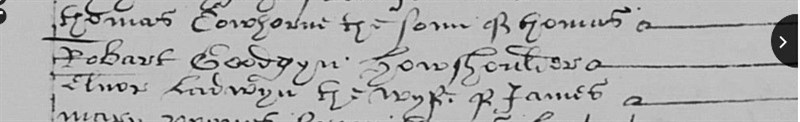 thomas Cowhorne the sonn of thomas
Robart Goodgyn howshoulder
Elnor Ladwyn the wyfe of James
mary